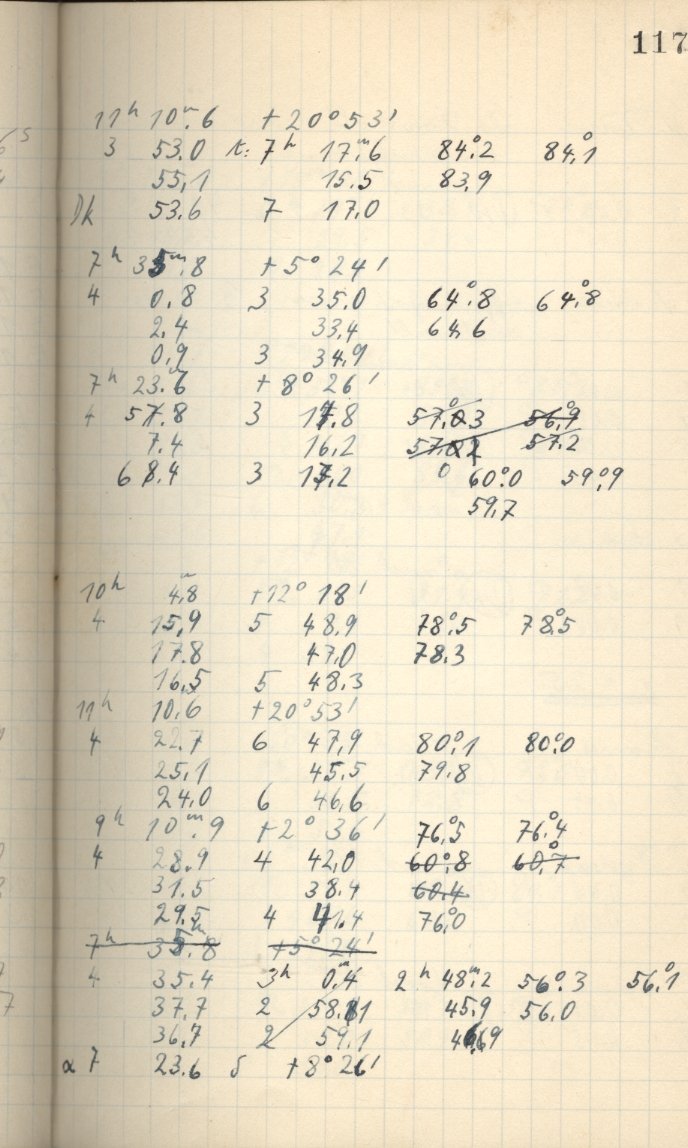 117
11h 10m.6 +20° 53'
3 53.0 t: 7h 17m.6 84°.2 84°.1
55,1 15.5 83.9
53.6 7 17.0
7h 35m.8 +5° 24'
4 0.8 3 35.0 64°.8 64°.8
2.4 33.4 64.6
0,9 3 34,9
7h 23.6 +8° 26'
4 57.8 3 17.8 57.3 56°.9
7.4 16,2 57.2
6 8.4 3 17,2 60°.0 59°.9
59,7
10h 4m.8 +12° 18'
4 15,9 5 48.9 78°.5 78°.5
17.8 47,0 78.3
16,5 5 48.3
11h 10.6 +20° 53'
4 22.7 6 47,9 80°.1 80°.0
25,1 45.5 79.8
24,0 6 46,6
9h 10m.9 +2° 36' 76°.5 76°.4
4 28.9 4 42,0 60°.8 60°.7
31.5 38.4 60.4
29.5 4 41.4 76°.0
7h 35m.8 +5° 24'
4 35.4 3h 0m.4 2h 48m.2 56°.3 56°.1
37,7 2 58.1 45.9 56.0
36,7 2 59.1 46,9
α 7 23.6 δ +8° 26'